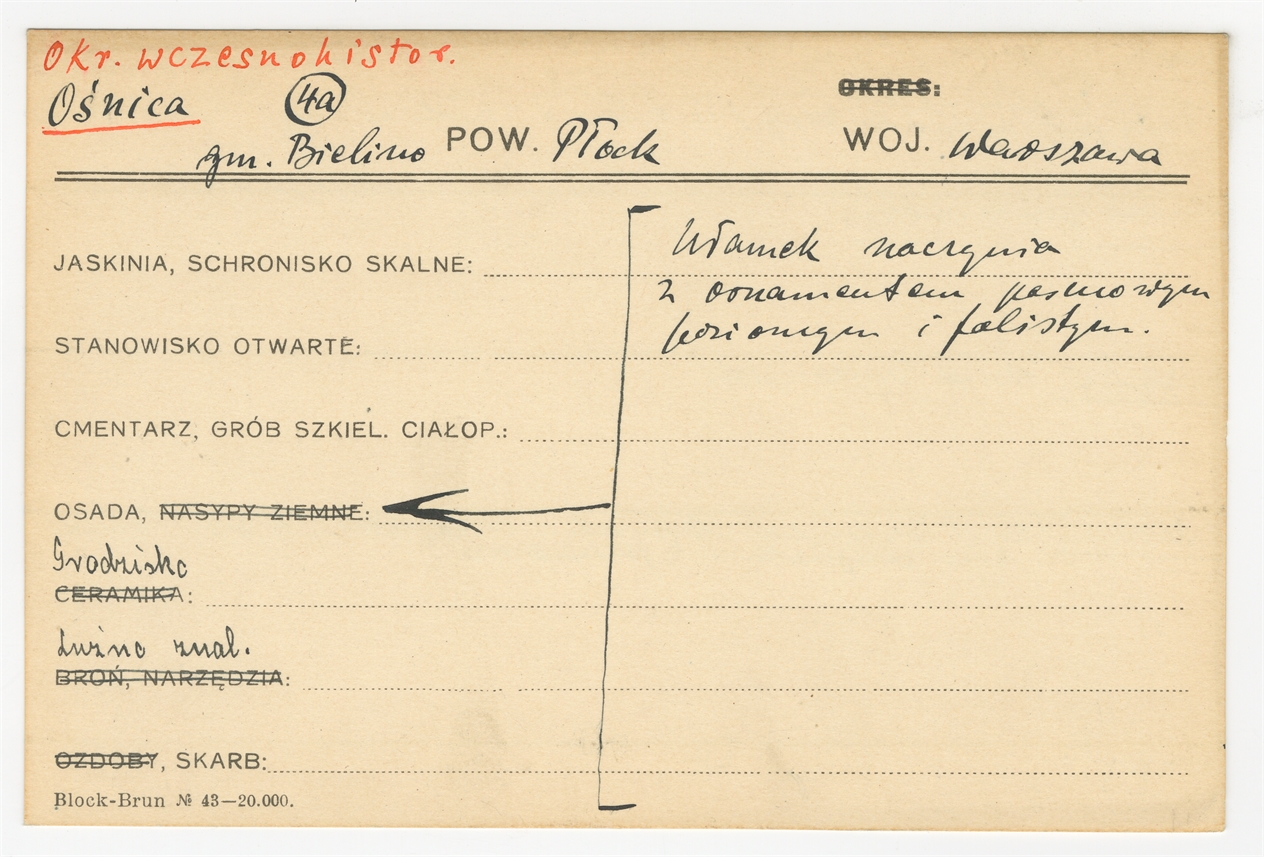 Okr. wczesnohistor.
Ośnica 4a OKRES:
gm. Bielino POW. Płock WOJ. Warszawa
Ułamek naczynia
JASKINIA, SCHRONISKO SKALNE:
z ornamentem pasmowym
poziomym i falistym.
STANOWISKO OTWARTE:
CMENTARZ, GRÓB SZKIEL. CIAŁOP.:
OSADA, NASYPY ZIEMNE:
Grodzisko
CERAMIKA:
Luźne znal.
BROŃ, NARZĘDZIA:
OZDOBY, SKARB:
Block-Brun № 43—20.000.